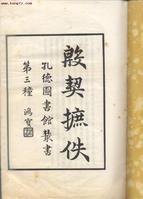 殷契摭佚
孔德圖書館叢書
第三種 鴻寶